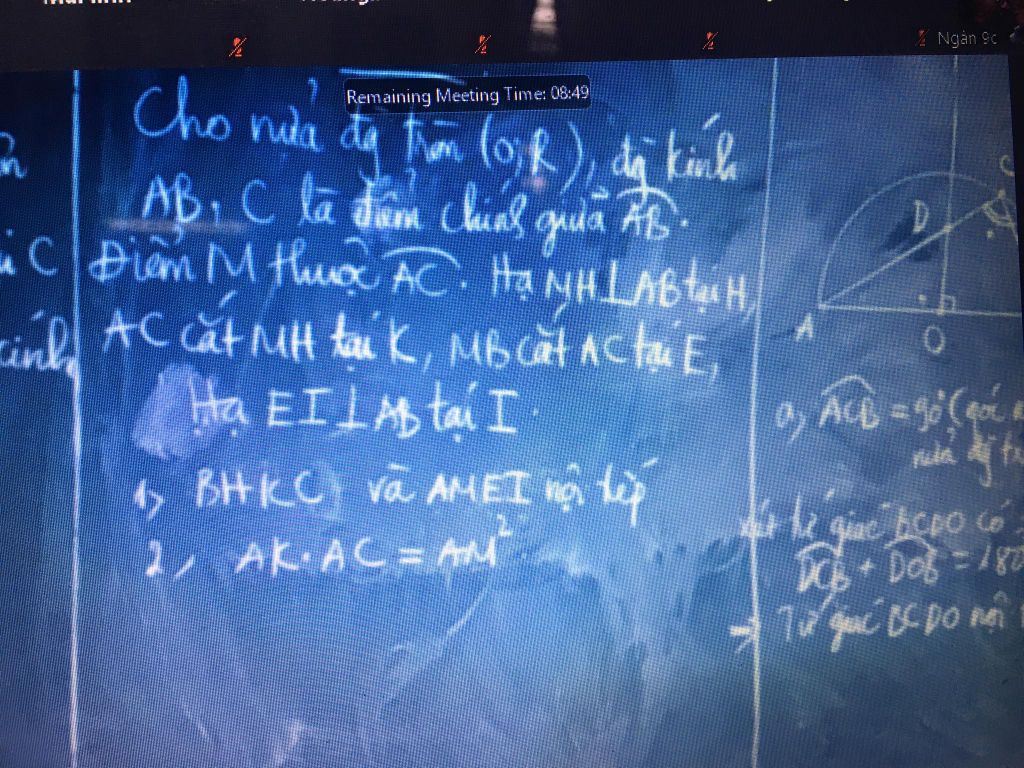 Ngân 9c
Remaining Meeting Time: 08:49
Cho nửa đg tròn (O;R), đg kính
AB, C là điểm chính giữa AB.
Điểm M thuộc AC. Hạ MH⊥AB tại H,
AC cắt MH tại K, MB cắt AC tại E,
Hạ EI⊥AB tại I.
1, BHKC và AMEI nội tiếp
2, AK.AC = AM²
C
kính
C
D
A
O
a, ACB = 90° (góc
nửa đg
tứ giác BCDO có
DCB + DOB = 180
⇒ Tứ giác BCDO nội